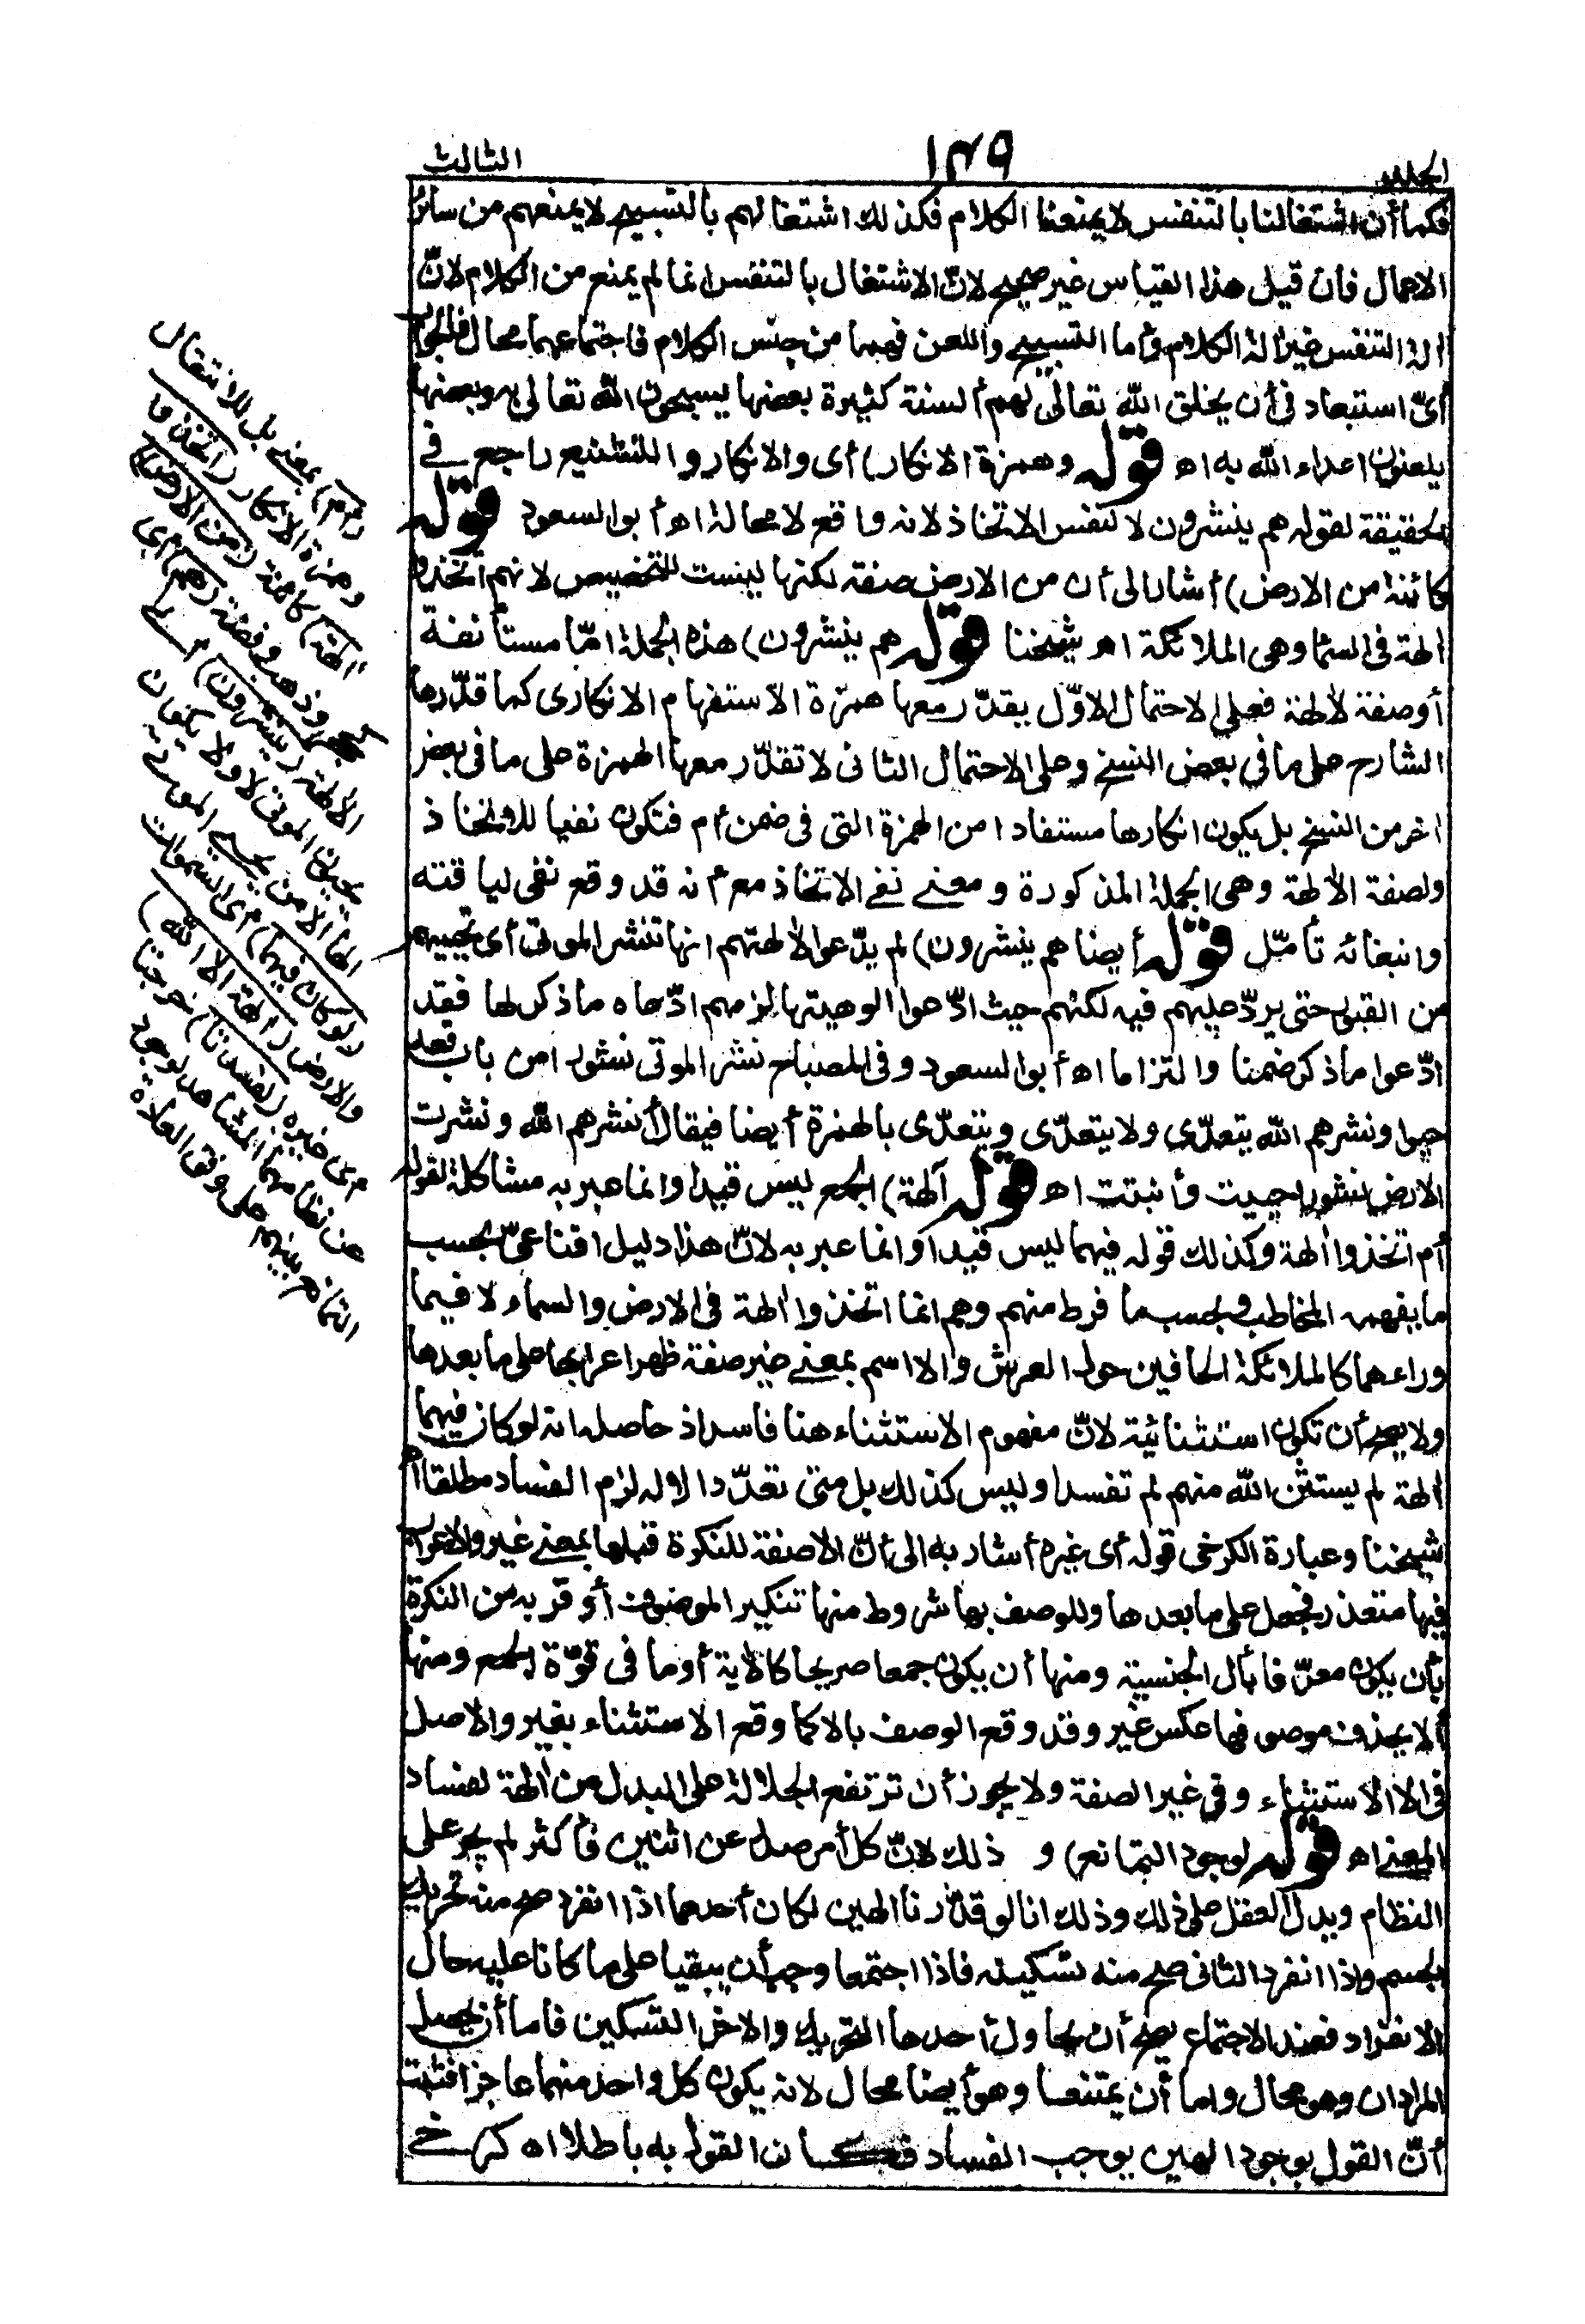 الجلد ١٣٩ الثالث
فكما أن اشتغالنا بالتنفس لا يمنعنا الكلام فكذلك اشتغالهم بالتسبيح لا يمنعهم من سائر
الاعمال فان قيل هذا القياس غير صحيح لانّ الاشتغال بالتنفس انما لم يمنع من الكلام لانّ
الة التنفس غير الة الكلام وأما التسبيح واللعن فهما من جنس الكلام فاجتماعهما محال فالجواب
أىّ استبعاد فى أن يخلق اللّه تعالى لهم ألسنة كثيرة بعضها يسبحون اللّه تعالى به وبعضها
يلعنون اعداء اللّه به اه قوله وهمزة الانكار) أى والانكار والتشنيع راجع فى
الحقيقة لقوله هم ينشرون لا لنفس الاتخاذ لانه واقع لا محالة اه أبو السعود قوله
كائنة من الارض) أشار الى أن من الارض صفة لكنها ليست للتخصيص لانهم اتخذوا
الهة فى السما وهى الملائكة اه شيخنا قوله هم ينشرون) هذه الجملة امّا مستأنفة
أو صفة لألهة فعلى الاحتمال الاوّل يقدّر معها همزة الاستفهام الانكارى كما قدّرها
الشارح على ما فى بعض النسخ وعلى الاحتمال الثانى لا تقدّر معها الهمزة على ما فى بعض
اخر من النسخ بل يكون انكارها مستفادا من الهمزة التى فى ضمن أم فتكون نفيا للاتخاذ
ولصفة الألهة وهى الجملة المذكورة ومعنى نفى الاتخاذ مع أنه قد وقع نفى لياقته
وانبغائه تأمّل قوله أيضا هم ينشرون) لم يدّعوا لألهتهم انها تنشر الموتى أى تحييهم
من القبور حتى يردّ عليهم فيه لكنهم حيث ادّعوا الوهيتها لزمهم ادّعاه ما ذكر لها فقد
ادّعوا ما ذكر ضمنا والتزاما اه أبو السعود وفى المصباح نشر الموتى نشورا من باب قعد
حيوا ونشرهم اللّه يتعدّى ولا يتعدّى ويتعدّى بالهمزة أيضا فيقال أنشرهم اللّه ونشرت
الارض نشورا حييت وأنبتت اه قوله آلهة) الجمع ليس قيدا وانما عبر به مشاكلة لقوله
أم اتخذوا ألهة وكذلك قوله فيهما ليس قيدا وانما عبر به لانّ هذا دليل اقناعىّ بحسب
ما يفهمه المخاطب وبحسب ما فرط منهم وهم انما اتخذوا ألهة فى الارض والسماء لا فيما
وراءهما كالملائكة الحافين حول العرش والا اسم بمعنى غير صفة ظهر اعرابها على ما بعدها
ولا يصح أن تكون استثنائية لانّ مفهوم الاستثناء هنا فاسد اذ حاصله انه لو كان فيهما
ألهة لم يستثن اللّه منهم لم تفسدا وليس كذلك بل متى تعدّد الاله لزم الفساد مطلقا اه
شيخنا وعبارة الكرخى قوله أى غيره أشار به الى أنّ الا صفة للنكرة قبلها بمعنى غير والاعراب
فيها متعذر فجعل على ما بعدها وللوصف بها شروط منها تنكير الموصوف أو قربه من النكرة
بأن يكون معرّفا بأل الجنسية ومنها أن يكون جمعا صريحا كالأية أو ما فى قوّة الجمع ومنها
ألا يحذف موصوفها عكس غير وقد وقع الوصف بالا كما وقع الاستثناء بغير والاصل
فى الا الاستثناء وفى غير الصفة ولا يجوز أن ترتفع الجلالة على البدل من ألهة لفساد
المعنى اه قوله لوجود التمانع) و ذلك لانّ كل أمر صدر عن اثنين فأكثر لم يجر على
النظام ويدل العقل على ذلك وذلك انا لو قدّرنا الهين لكان أحدهما اذا انفرد صح منه تحريك
الجسم واذا انفرد الثانى صح منه تسكينه فاذا اجتمعا وجب أن يبقيا على ما كانا عليه حال
الانفراد فعند الاجتماع يصح أن يحاول أحدها التحريك والاخر التسكين فاما أن يحصل
المرادان وهو محال واما أن يمتنعا وهو أيضا محال لانه يكون كل واحد منهما عاجزا فثبت
أنّ القول بوجود الهين يوجب الفساد فكان القول به باطلا اه كرخى
(أم) بمعنى بل للانتقال
وهمزة الانكار (اتخذوا
ألهة) كائنة (من الارض)
كحجر وذهب وفضة (هم) أى
الألهة (ينشرون) أى
يحيون الموتى لا ولا يكون
الها الا من يحيى الموتى
(لو كان فيهما) أى السموات
والارض (ألهة الا اللّه)
أى غيره (لفسدتا) خرجتا
عن نظامهما المشاهد لوجود
التمانع بينهم على وفق العادة